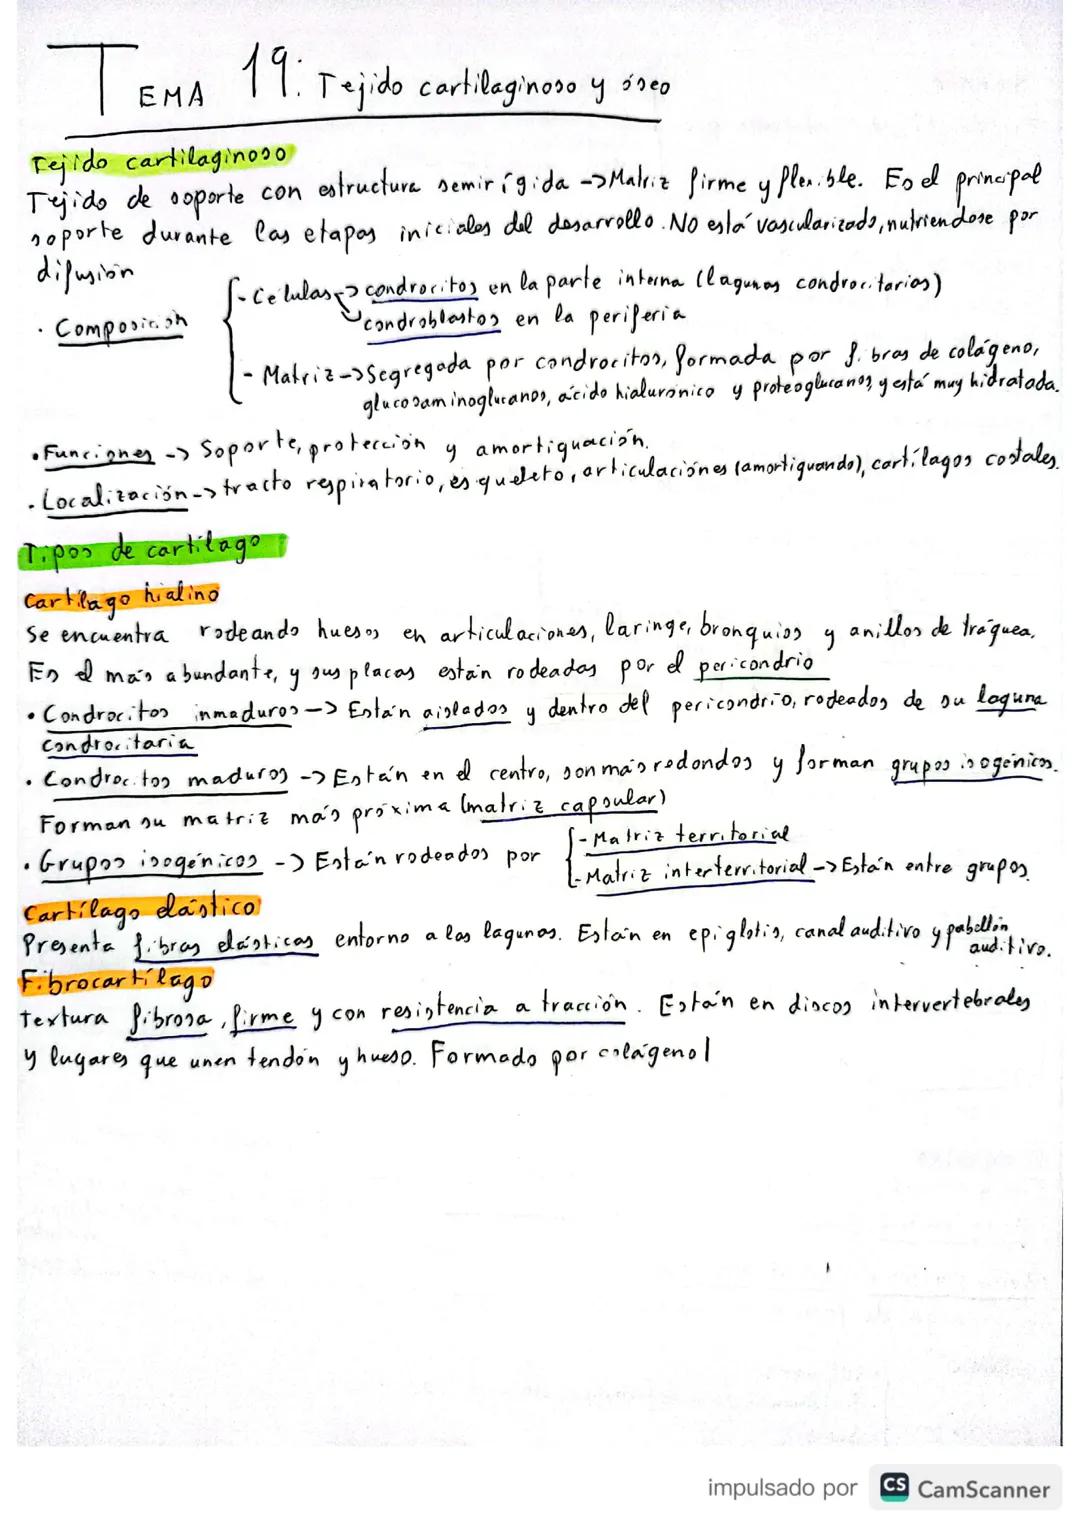 TEMA 19: Tejido cartilaginoso y óseo
Tejido cartilaginoso
Tejido de soporte con estructura semirígida -> Matriz firme y flexible. Es el principal
soporte durante las etapas iniciales del desarrollo. No está vascularizado, nutriendose por
difusión
· Composición
- Células -> condrocitos en la parte interna (lagunas condrocitarias)
condroblastos en la periferia
- Matriz -> Segregada por condrocitos, formada por fibras de colágeno,
glucosaminoglucanos, ácido hialurónico y proteoglucanos, y está muy hidratada.
· Funciones -> Soporte, protección y amortiguación.
· Localización -> tracto respiratorio, esqueleto, articulaciónes (amortiguando), cartílagos costales.
Tipos de cartílago
Cartílago hialino
Se encuentra rodeando huesos en articulaciones, laringe, bronquios y anillos de tráquea.
Es el más abundante, y sus placas están rodeadas por el pericondrio
· Condrocitos inmaduros -> Están aislados y dentro del pericondrio, rodeados de su laguna
condrocitaria
· Condrocitos maduros -> Están en el centro, son más redondos y forman grupos isogénicos.
Forman su matriz más próxima (matriz capsular)
· Grupos isogénicos -> Están rodeados por
- Matriz territorial
- Matriz interterritorial -> Están entre grupos
Cartílago elástico
Presenta fibras elásticas entorno a las lagunas. Están en epiglotis, canal auditivo y pabellón
auditivo.
Fibrocartílago
Textura fibrosa, firme y con resistencia a tracción. Están en discos intervertebrales
y lugares que unen tendón y hueso. Formado por colágeno I
impulsado por CS CamScanner